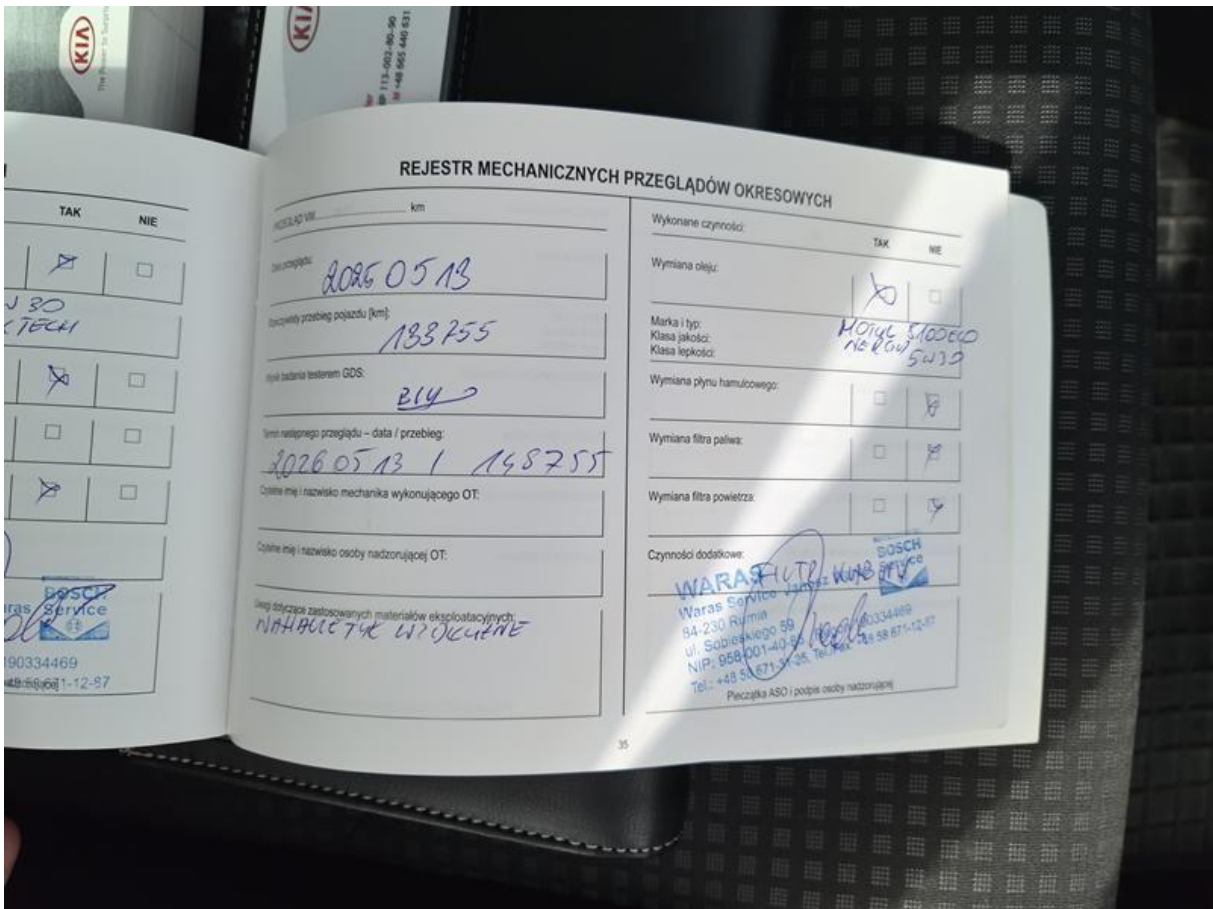 KIA
The Power to Surprise
KIA
113-002-80-90
+48 665 440 631
TAK NIE
W 30
TECH
BOSCH
Waras Service
190334469
671-12-87
REJESTR MECHANICZNYCH PRZEGLĄDÓW OKRESOWYCH
km
Data przeglądu:
2025 05 13
Rzeczywisty przebieg pojazdu [km]:
133755
Wynik badania testerem GDS:
Termin następnego przeglądu – data / przebieg:
2026 05 13 / 148755
Czytelne imię i nazwisko mechanika wykonującego OT:
Czytelne imię i nazwisko osoby nadzorującej OT:
Uwagi dotyczące zastosowanych materiałów eksploatacyjnych:
35
Wykonane czynności:
TAK NIE
Wymiana oleju:
Marka i typ:
Klasa jakości:
Klasa lepkości:
MOTUL 5100 ECO
NERGY
5W30
Wymiana płynu hamulcowego:
Wymiana filtra paliwa:
Wymiana filtra powietrza:
Czynności dodatkowe:
FILTR KABINY
BOSCH
Service
WARAS
Waras Service Janusz
84-230 Rumia
ul. Sobieskiego 59
NIP: 958-001-40-85 190334469
Tel.: +48 58 671-31-25, Tel./Fax +48 58 671-12-87
Pieczątka ASO i podpis osoby nadzorującej